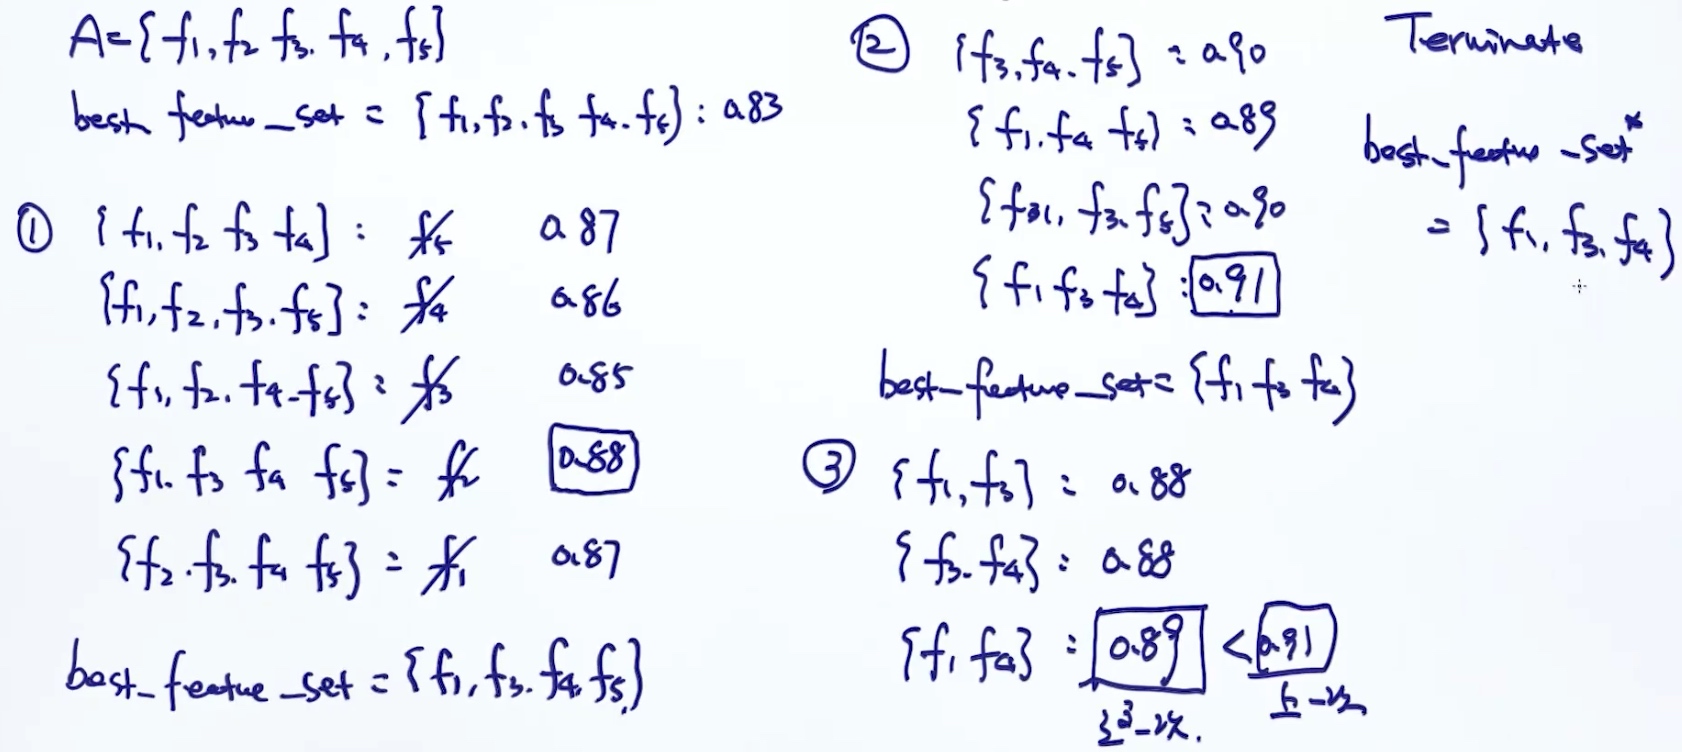 A={f1, f2 f3. f4, f5}
best feature_set = {f1, f2. f3 f4. f5} : 0.83
① {f1, f2 f3 f4} : f5 0.87
{f1, f2, f3. f5} : f4 0.86
{f1, f2. f4. f5} : f3 0.85
{f1. f3 f4 f5} = f2 0.88
{f2. f3. f4 f5} = f1 0.87
best_feature_set = {f1, f3. f4. f5.}
② {f3, f4. f5} : 0.90
{f1. f4 f5} : 0.89
{f1. f3. f5} : 0.90
{f1 f3 f4} : 0.91
best_feature_set = {f1 f3 f4}
③ {f1, f3} : 0.88
{f3. f4} : 0.88
{f1 f4} : 0.89 < 0.91
Terminate
best_feature_set*
= {f1. f3. f4}